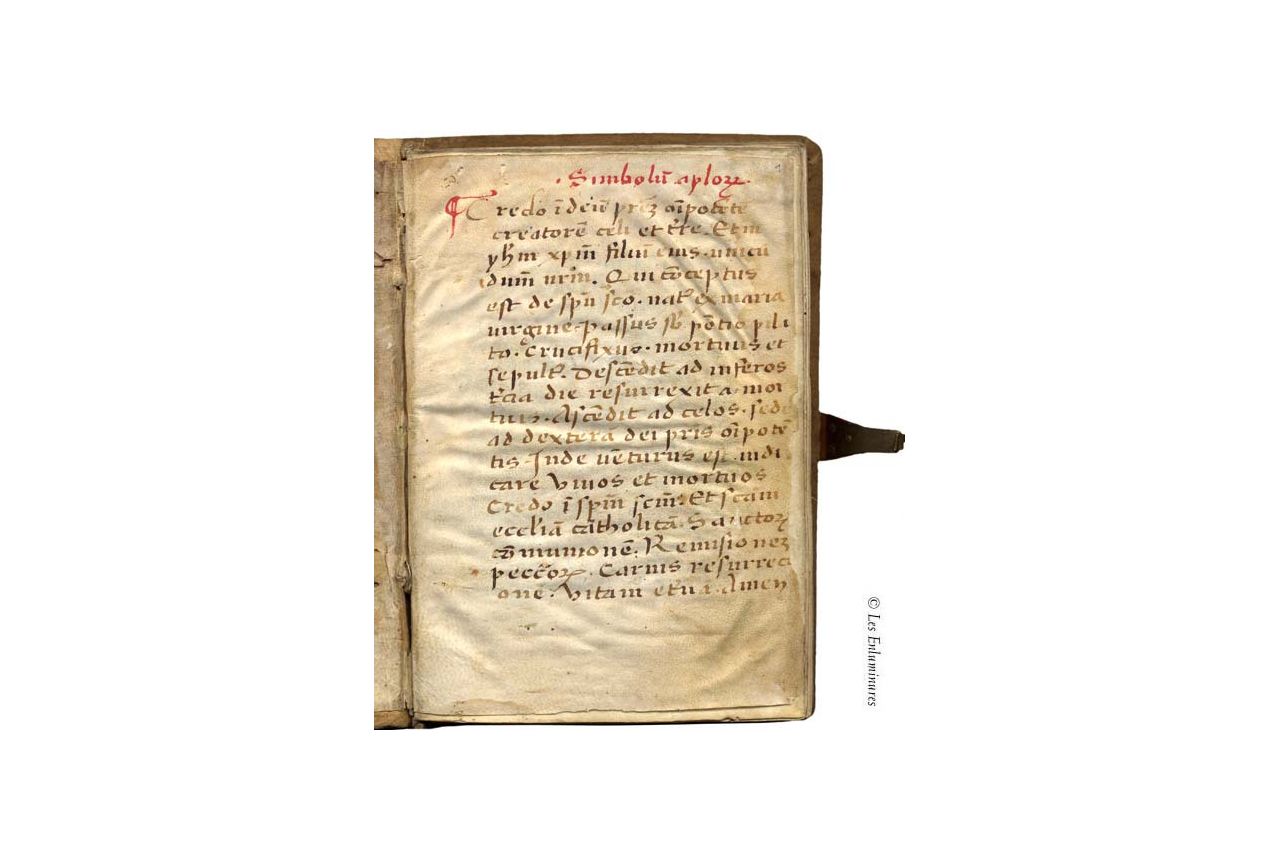 · Simbolū aploꝝ ·
Credo ī deū prēȝ oīpotētē
creatorē celi et tr̄e. Et in
yh̄m xpm̄ filiū eius · unicū
dūm nrm̄. Qui cōceptus
est de spū sc̄o · nat᷒ ex maria
virgine · passus sb̄ pōtio pila
to · Crucifixus · mortuus et
sepult᷒. Descēdit ad inferos
t̄cia die resurrexit a · mor
tuis · Ascēdit ad celos · sede
ad dexterā dei pris oīpotē
tis · Inde vēturus est iudi
care vivos et mortuos
Credo ī spm̄ scm̄. Et scām
eccl̄iā catholicā · Sanctoꝝ
cōmunionē. Remisionez
pecc̄oꝝ · Carnis resurrecti
one · Vitam et̄nā · Amen
© Les Enluminures